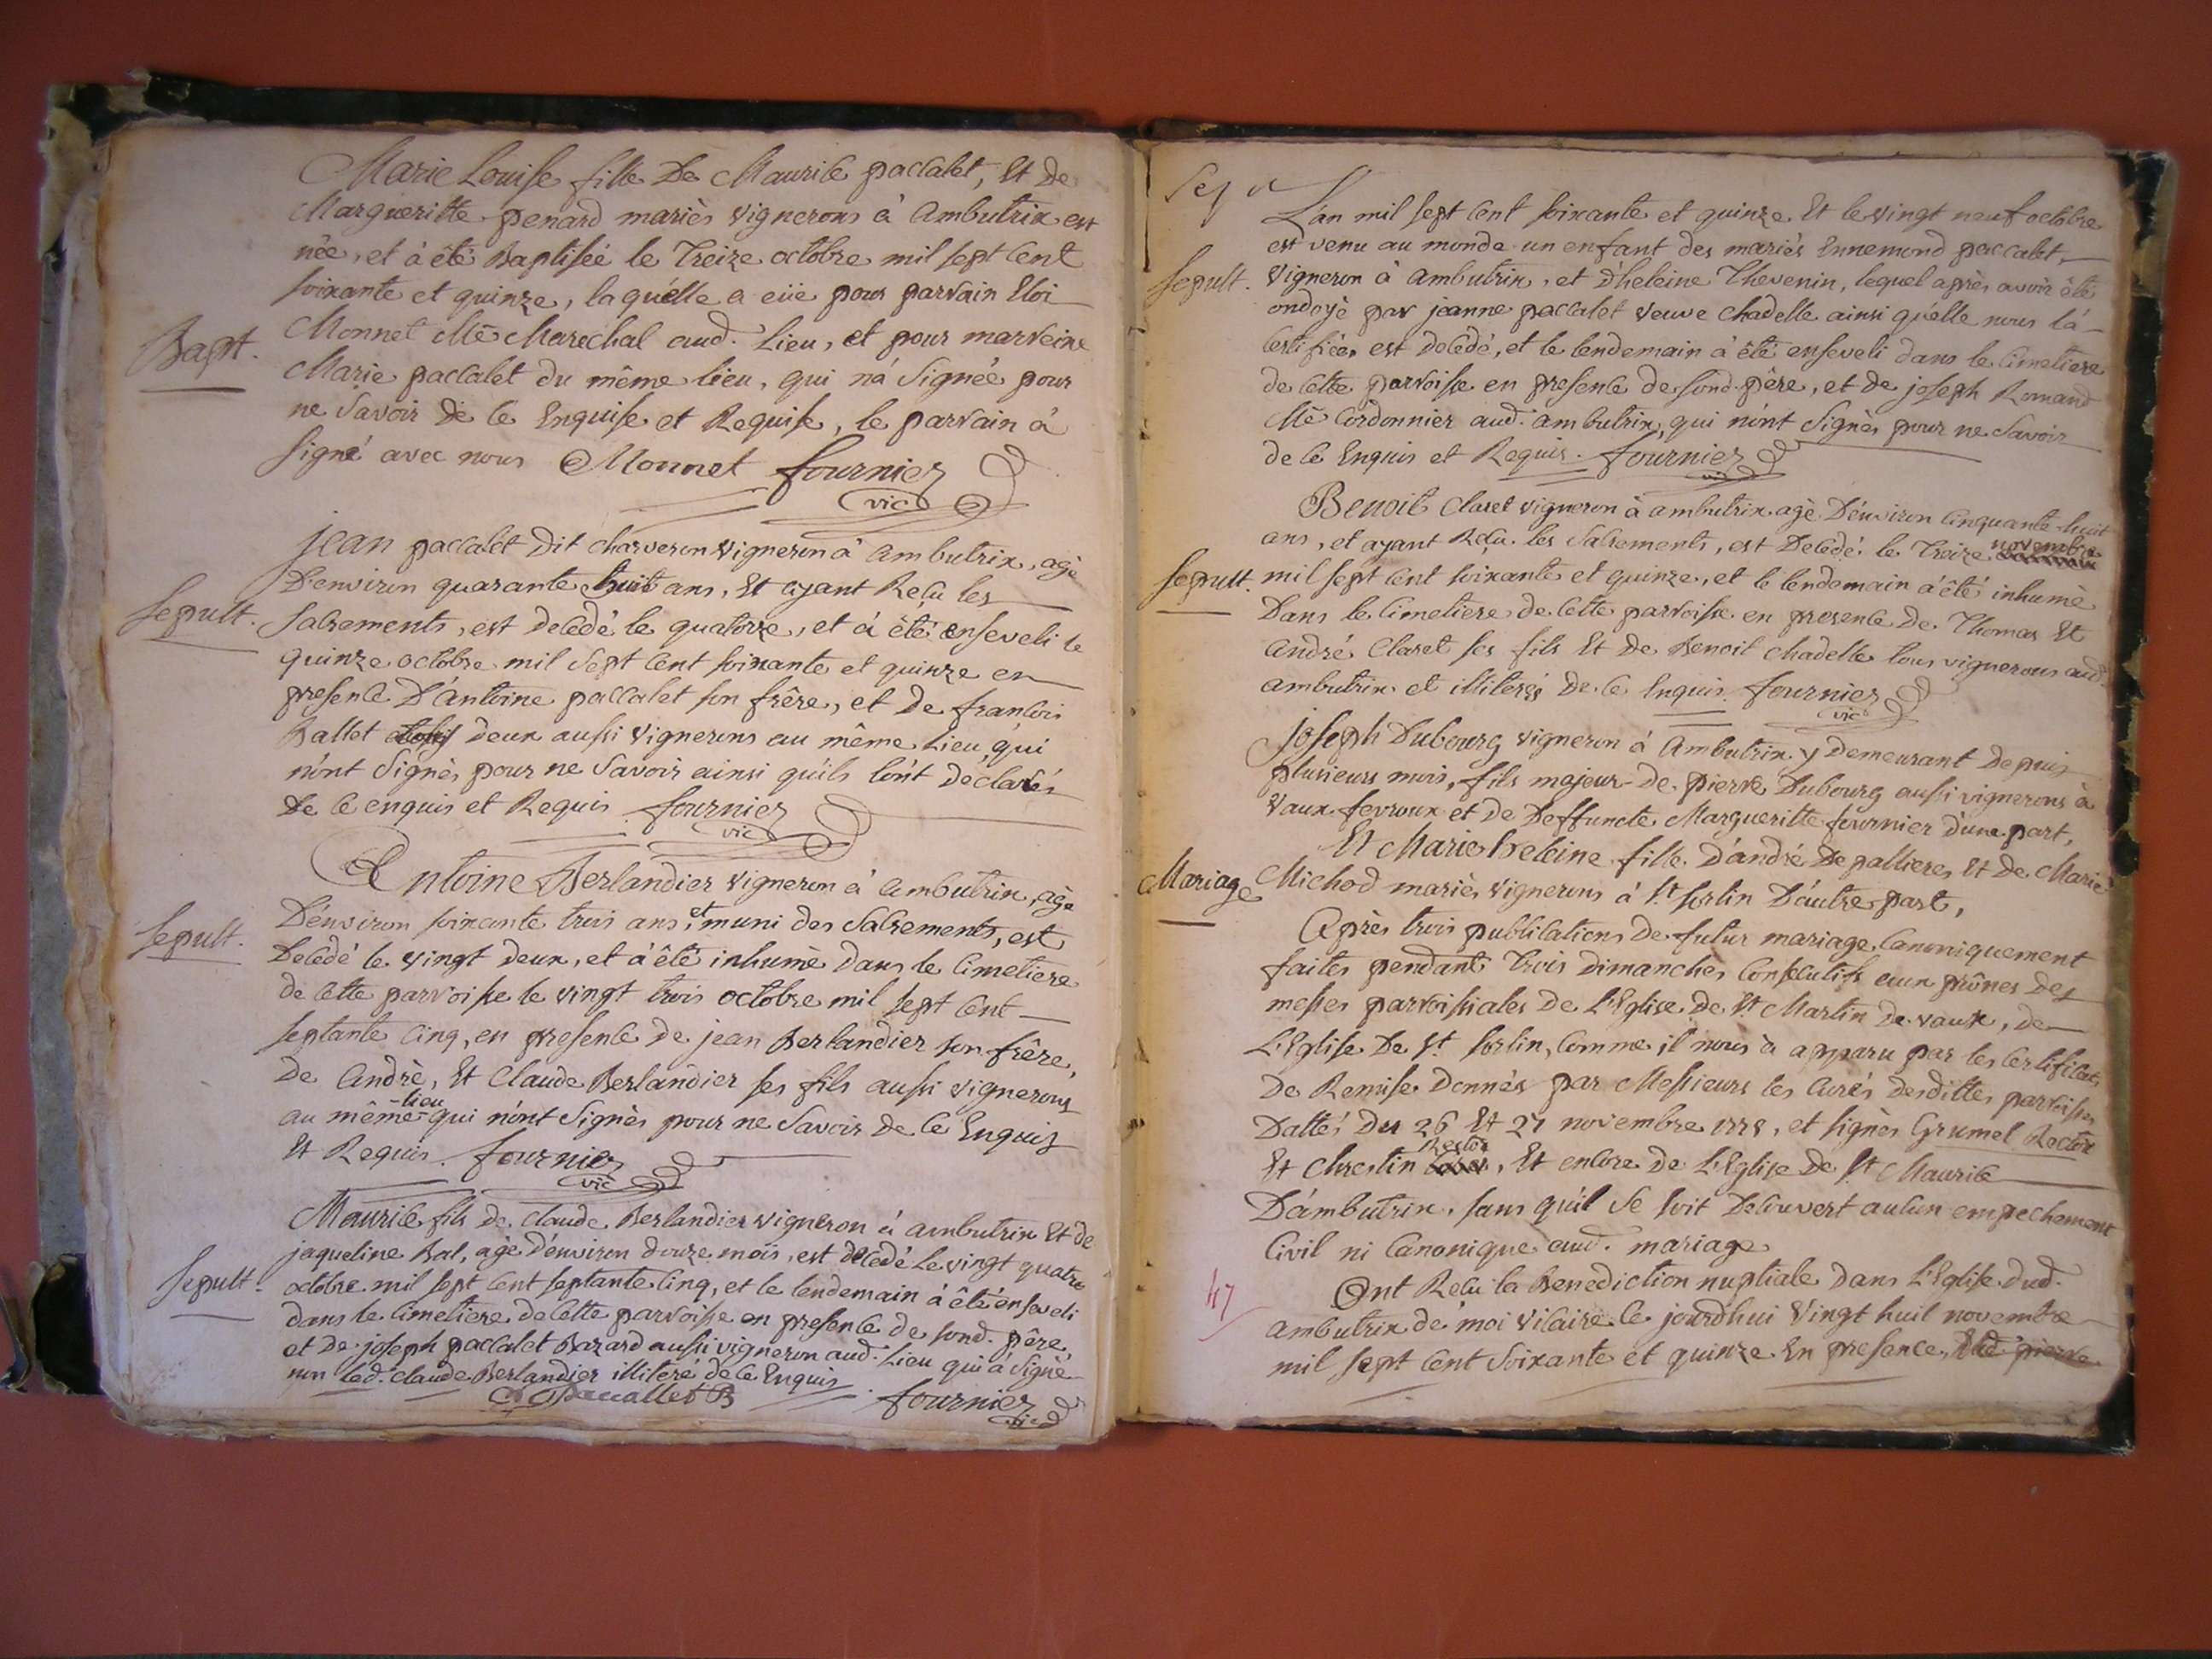 Marie Louise fille De Maurice paccalet, Et de
Margueritte penard mariès vignerons à Ambutrix est
née, et à été Baptisée le Treize octobre mil sept cent
soixante et quinze, laquélle a eüe pour parrain Eloi
Bapt.
Monnet Me Marechal aud. Lieu, et pour marreine
Marie paccalet du même lieu, qui ná Signée pour
ne Savoir de ce Enquise et Requise, le parrain à
signé avec nous Monnet fournier
vic
jean paccalet Dit charveron vigneron à ambutrix, agè
D'environ quarante huit ans, Et ayant Reçu les
Sepult.
Sacrements, est decedé le quatorze, et à été enseveli le
quinze octobre mil Sept cent soixante et quinze en
presence D'antoine paccalet son frêre, et de francois
Ballet deux aussi vignerons au même Lieu qui
nónt Signès pour ne Savoir ainsi quils lónt déclarés
De ce enquis et Requis fournier
vic
Antoine Berlandier vigneron à ambutrix, agè
D'environ soixante trois ans, et muni des Sacrements, est
Sepult.
Decedé le vingt deux, et à été inhumè dans le Cimetiere
de cette parroisse le vingt trois octobre mil sept cent
septante cinq, en presence de jean Berlandier son frêre,
De Andrè, Et Claude Berlandier ses fils aussi vignerons
au même lieu qui nónt Signès pour ne Savoir de ce Enquis
Et Requis. fournier
vic
Maurice fils de claude Berlandier vigneron à ambutrix Et de
jaqueline Bal, agè d'environ douze mois, est decedé le vingt quatre
Sepult.
octobre mil sept cent septante cinq, et le lendemain à été enseveli
dans le Cimetiere de cette parroisse en presence de sond. pêre,
et de joseph paccalet Bazard aussi vigneron aud. Lieu qui a Signè
non led. claude Berlandier illiteré de ce Enquis.
Paccallet B fournier
vic
Sep
L'an mil sept cent soixante et quinze Et le vingt neuf octobre
est venu au monde un enfant des mariès Ennemond paccalet,
Sepult.
vigneron à ambutrix, et d'heleine Thevenin, lequel après avoir été
ondoyè par jeanne paccalet veuve chadelle ainsi quélle nous lá
certifiée, est decedé, et le lendemain à été enseveli dans le Cimetiere
de cette parroisse en presence de sond. pêre, et de joseph Romand
Me Cordonnier aud. ambutrix, qui nónt Signès pour ne Savoir
de ce Enquis et Requis. fournier
vic
Benoit Claret vigneron à ambutrix agè D'environ Cinquante huit
ans, et ayant Reçu les Sacrements, est Decedé le Treize novembre
Sepult.
mil sept cent soixante et quinze, et le lendemain à été inhumè
Dans le Cimetiere de cette parroisse en presence de Thomas Et
André Claret ses fils Et de Benoit chadelle tous vignerons aud.
ambutrix et illiterés de ce Enquis. fournier
vic
joseph Dubourg vigneron à Ambutrix y demeurant depuis
plusieurs mois, fils majeur de pierre Dubourg aussi vignerons à
vaux fevroux et de Deffuncte Margueritte fournier d'une part,
Et Marie heleine fille D'andrè Depallieres Et de Marie
Mariage
Michod mariès vignerons à St sorlin D'autre part,
Après trois publications de futur mariage Canoniquement
faites pendant Trois Dimanches Consecutifs aux prônes des
messes parroissiales de L'Eglise de St Martin de vaux, de
L'Eglise De St sorlin, Comme il nous à apparu par les Certificats
De Remise donnés par Messieurs les Curés desdittes parroisses
Dattés Du 26 Et 27 novembre 1775, et signès Grumel Rector
Et Chrestin Rector, Et encore de L'Eglise De St Maurice
D'ambutrix, sans qúil Se soit Decouvert aucun empechement
Civil ni Canonique aud. mariage
Ont Reçu la Benediction nuptiale dans L'Eglise dud.
47
ambutrix de moi vicaire ce jourdhui vingt huit novembre
mil sept cent soixante et quinze En presence, Dud. pierre